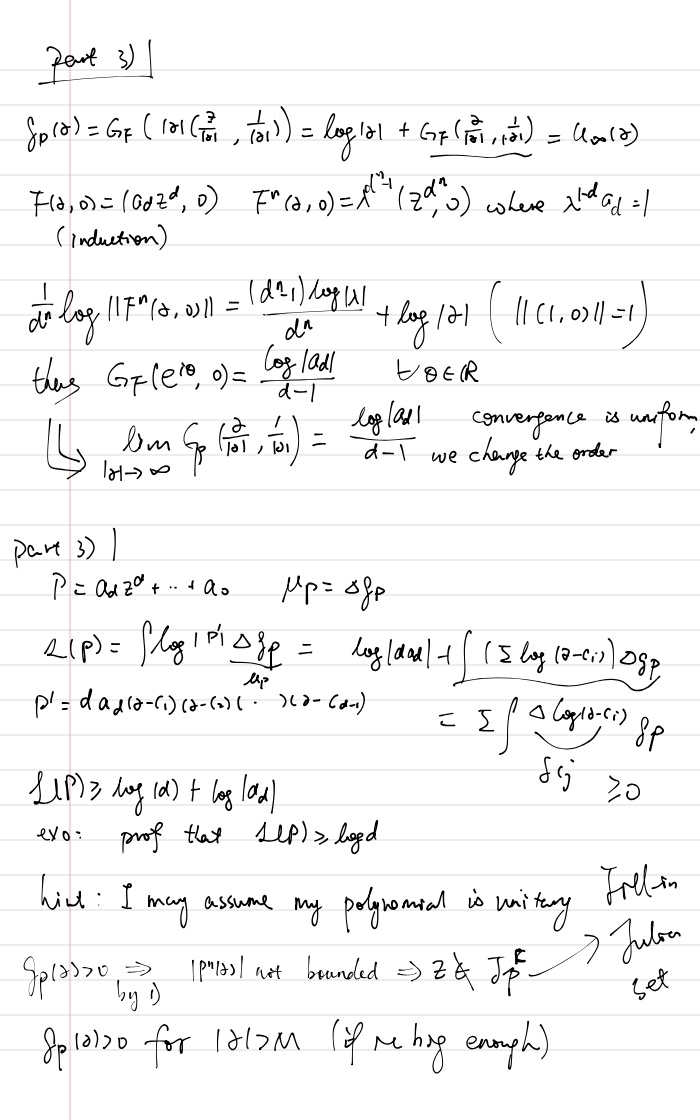 Part 3)
g_P(z) = G_F ( |z| ( z/|z| , 1/|z| )) = log|z| + G_F ( z/|z| , 1/|z| ) = u_∞(z)
F(z, 0) = (a_d z^d, 0) F^n(z, 0) = λ^{d^n-1} (z^{d^n}, 0) where λ^{1-d} a_d = 1
(induction)
1/d^n log ||F^n(z, 0)|| = (d^n-1) log|λ| / d^n + log|z| ( ||(1, 0)|| = 1 )
thus G_F(e^{iθ}, 0) = log|a_d| / d-1 ∀θ∈ℝ
lim_{|z|→∞} G_P ( z/|z| , 1/|z| ) = log|a_d| / d-1 convergence is uniform,
we change the order
part 3)
P = a_d z^d + ... + a_0 μ_P = Δg_P
L(P) = ∫ log|P'| Δg_P = log|d a_d| + ∫ (Σ log|z-c_i|) Δg_P
μ_P
P' = d a_d (z-c_1)(z-c_2)( . )(z-c_{d-1}) = Σ ∫ Δ log|z-c_i| g_P
δ_{c_j} ≥ 0
L(P) ≥ log(d) + log|a_d|
exo: prof that L(P) ≥ log d
hint: I may assume my polynomial is unitary
Fill-in
Julia
set
g_P(z) > 0 ⇒ |P^n(z)| not bounded ⇒ z ∉ J_P^F
by 1)
g_P(z) > 0 for |z| > M (if M big enough)